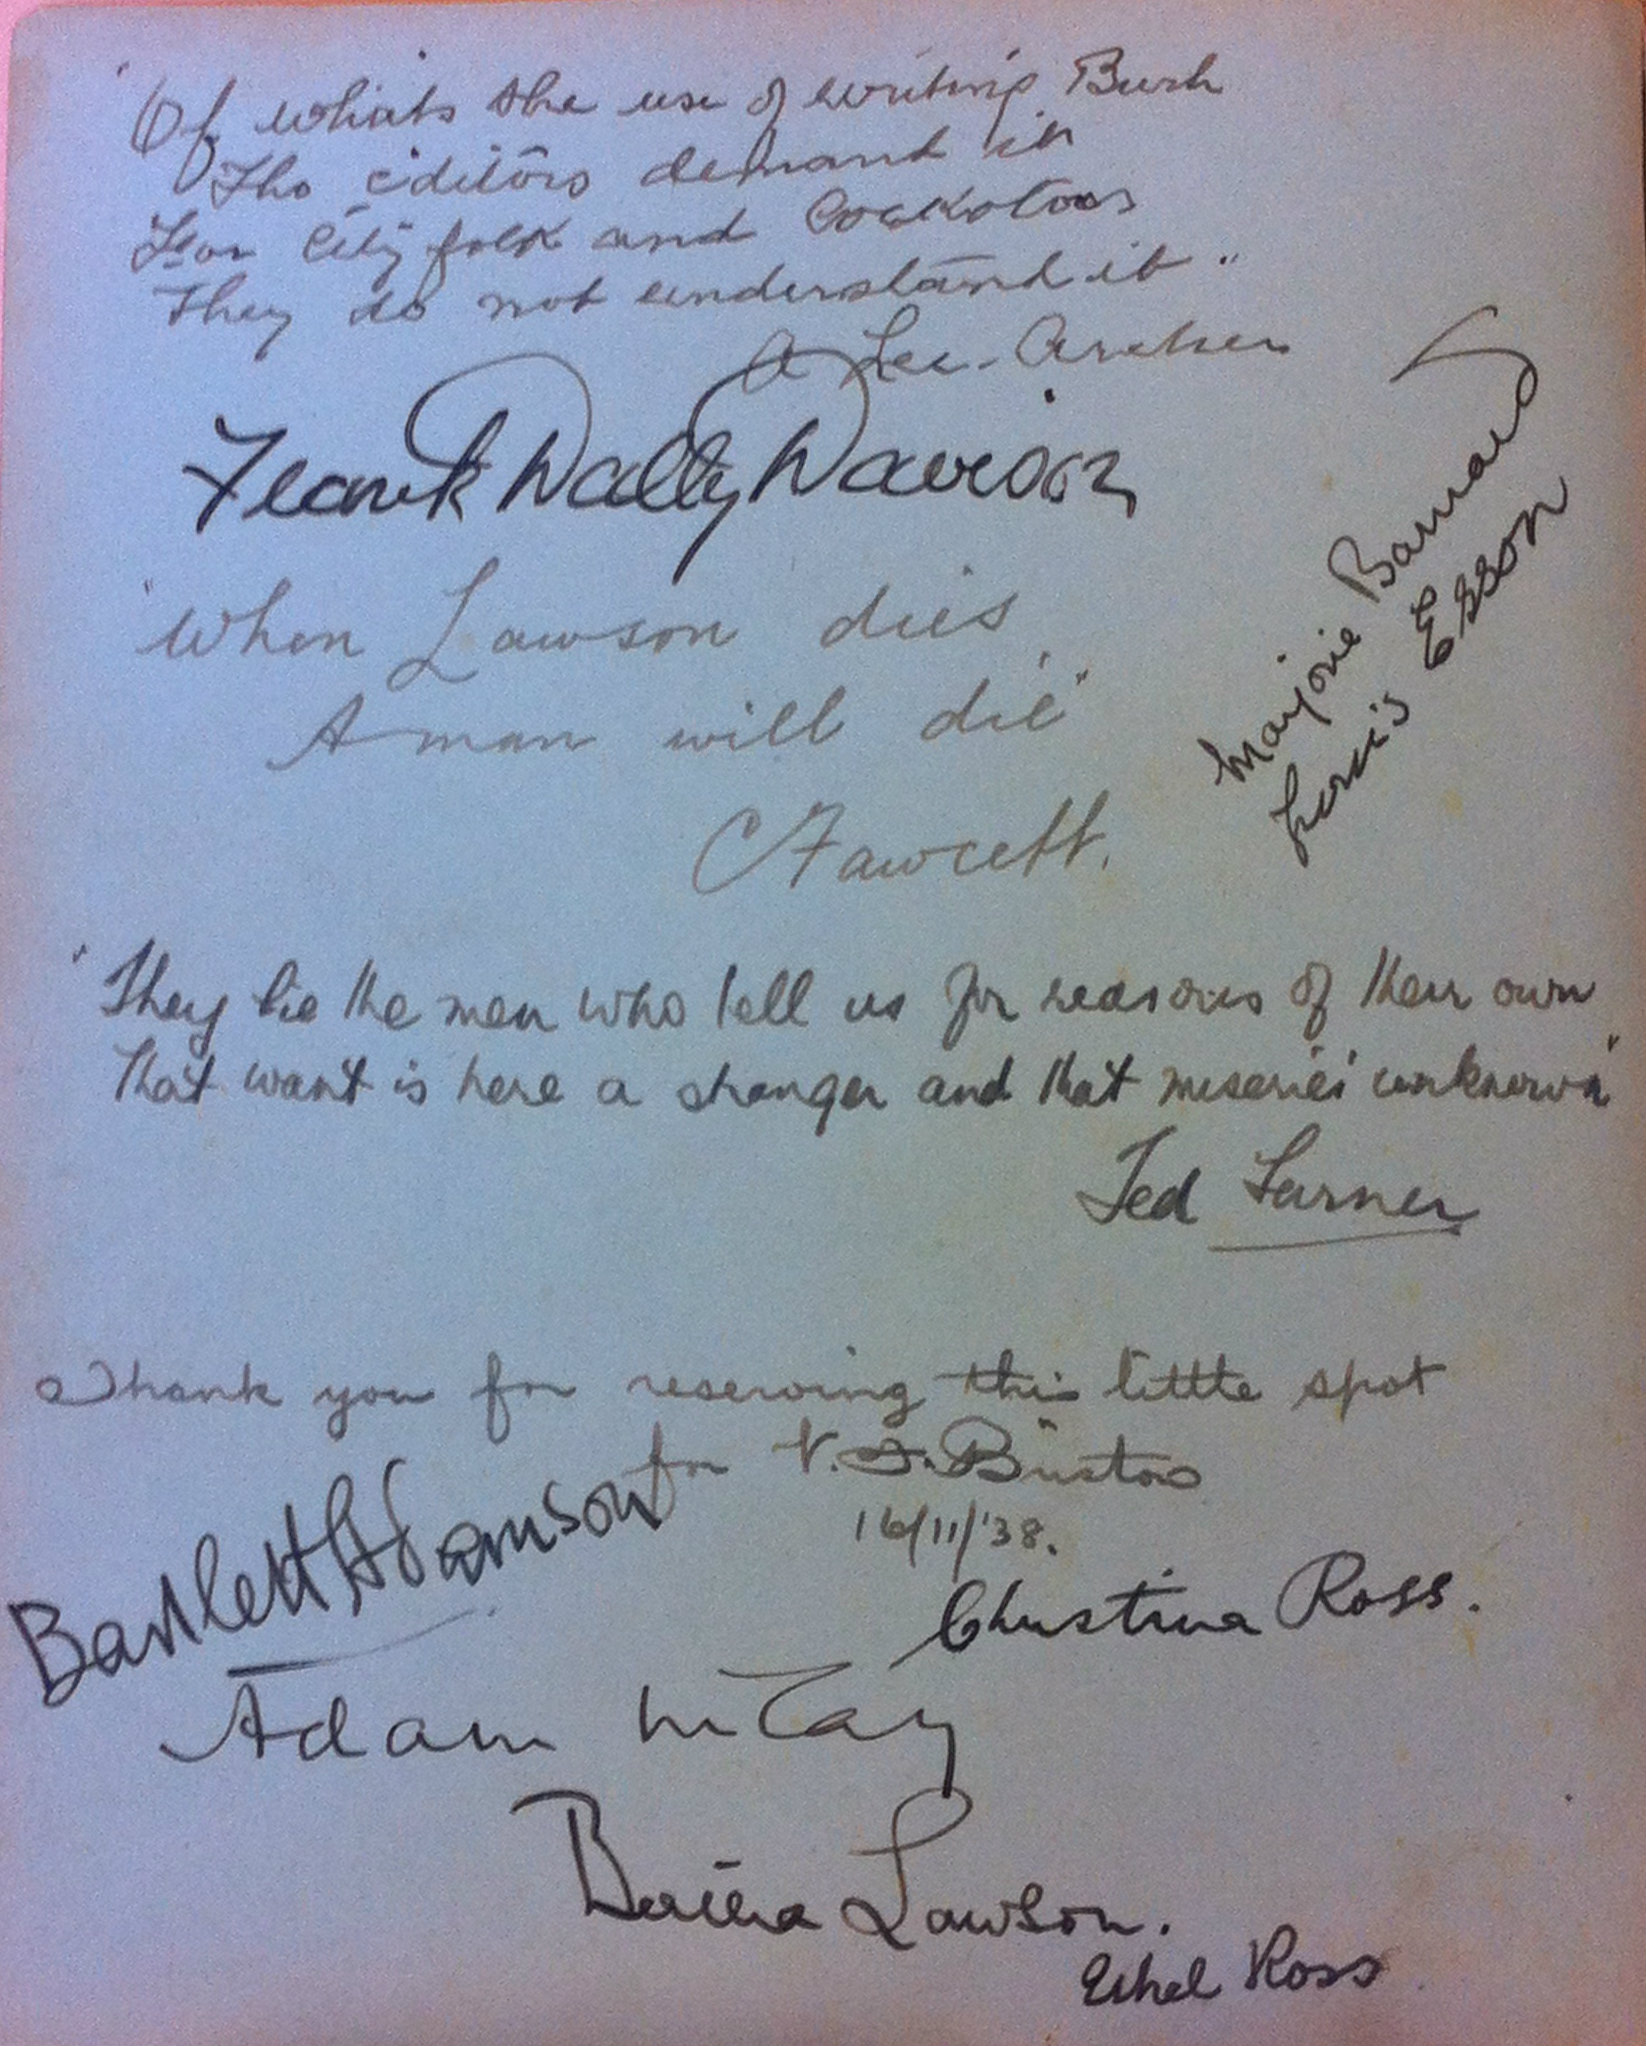 "Of whats the use of writing Bush
Tho editors demand it
For City folk and Cockatoos
They do not understand it"
A Lee-Archer
Frank Dalby Davison
Marjorie Barnard
Louis Esson
"When Lawson dies,
A man will die"
C Fawcett.
"They lie the men who tell us for reasons of their own
That want is here a stranger and that miseries unknown"
Ted Turner
Thank you for reserving this little spot
for V. J. Bristow
16/11/'38.
Bartlett Adamson
Christina Ross.
Adam McCay
Bertha Lawson.
Ethel Ross